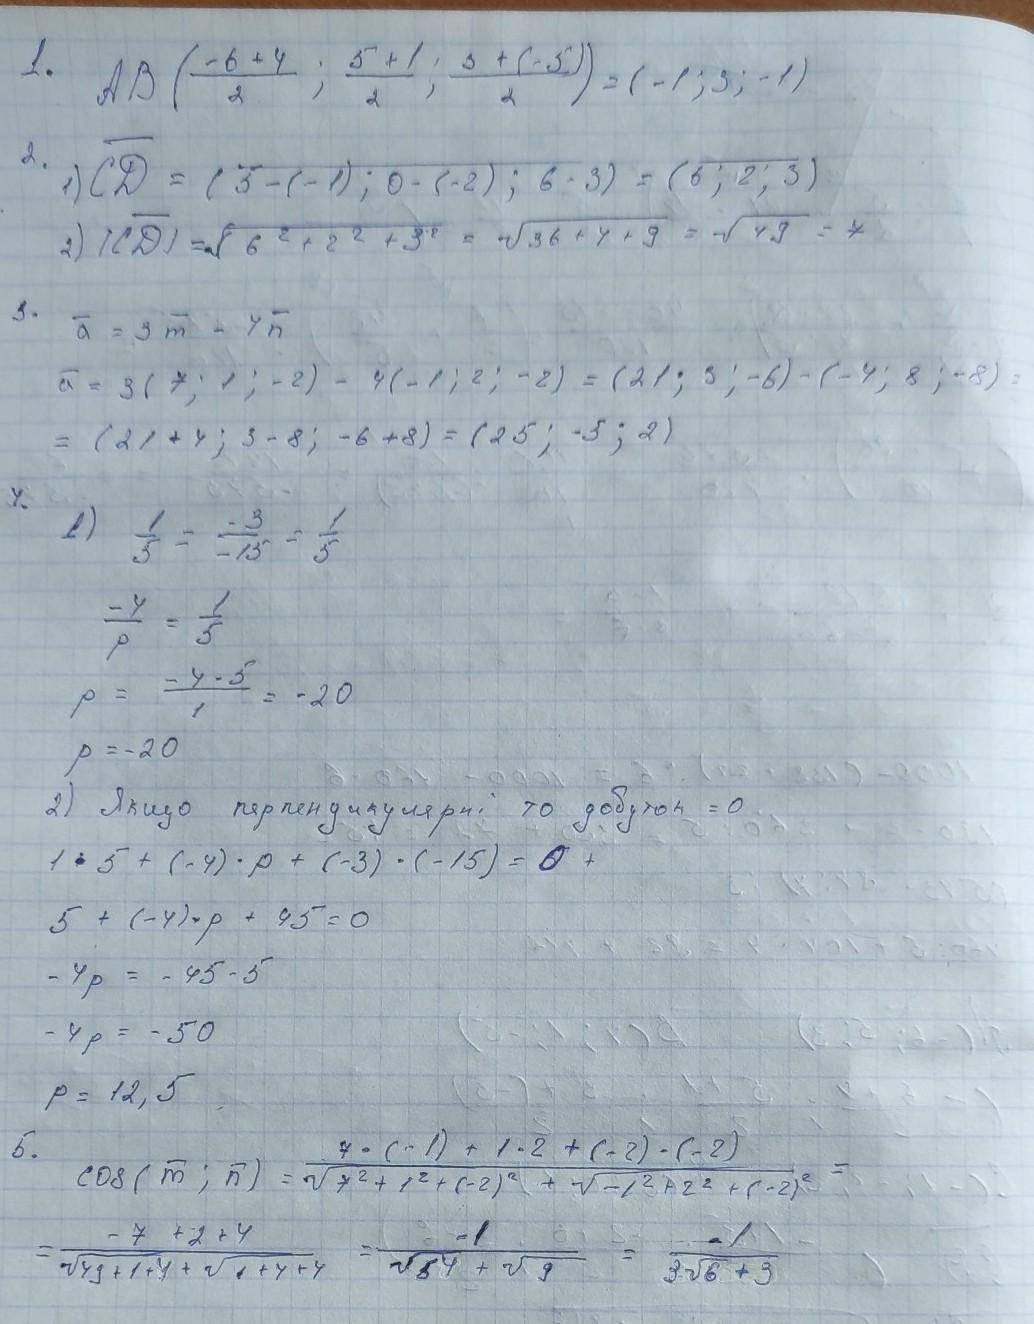 1. AB (-6+4/2 ; 5+1/2 ; 3+(-5)/2) = (-1; 3; -1)
2. 1) C̅D̅ = (5-(-1); 0-(-2); 6-3) = (6; 2; 3)
2) |C̅D̅| = √6²+2²+3² = √36+4+9 = √49 = 7
3. a̅ = 3m̅ - 4n̅
a̅ = 3(7; 1; -2) - 4(-1; 2; -2) = (21; 3; -6) - (-4; 8; -8) =
= (21+4; 3-8; -6+8) = (25; -5; 2)
4. 1) 1/5 = -3/-15 = 1/5
-4/p = 1/5
p = -4·5/1 = -20
p = -20
2) Якщо перпендикулярні то добуток = 0
1·5 + (-4)·p + (-3)·(-15) = 0 +
5 + (-4)·p + 45 = 0
-4p = -45-5
-4p = -50
p = 12,5
5. cos(m̅; n̅) = 7·(-1) + 1·2 + (-2)·(-2)/√7²+1²+(-2)² + √-1²+2²+(-2)² =
= -7+2+4/√49+1+4 + √1+4+4 = -1/√54 + √9 = -1/3√6+3